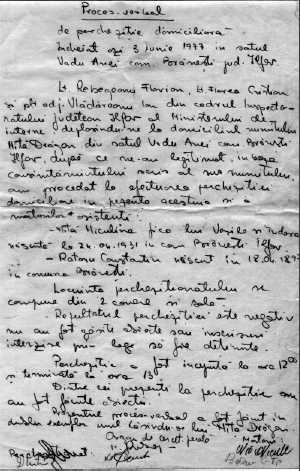 Proces-verbal
de perchezitie domiciliară
încheiat azi 3 Junie 1977 în satul
Vadu Anei com Brănești jud. Ilfov.
Lt. Florian, lt. Florea Cristian
și plt adj. Vlădăreanu Ion din cadrul Inspecto-
ratului judetean Ilfov al Ministerului de
interne deplasîndu-ne la domiciliul numitului
Mită Drăgan din satul Vadu Anei com Brănești
Ilfov, după ce ne-am legitimat, în baza
consimțămîntului scris al sus numitului,
am procedat la efectuarea perchezitiei
domiciliare în prezenta acestuia și a
martorilor asistenti:
- Mită Niculina fica lui Vasile si Tudora
născută la 24.04.1931 în com Brănesti Ilfov
- Constantin născut în 18.04.
în comuna Brănesti.
Locuinta perchezitionatului se
compune din 2 camere și sală.
Rezultatul perchezitiei este negativ
nu au fost găsite obiecte sau înscrisuri
interzise prin lege să fie detinute.
Perchezitia a fost începută la ora 12
și terminată la ora 13
Dintre cei prezenti la perchezitie nu
au fost făcute obiectii.
Prezentul proces-verbal a fost făcut în
dublu exemplar unul lăsîndu-se lui Mită Drăgan.
Organ de cercet. penale Martori